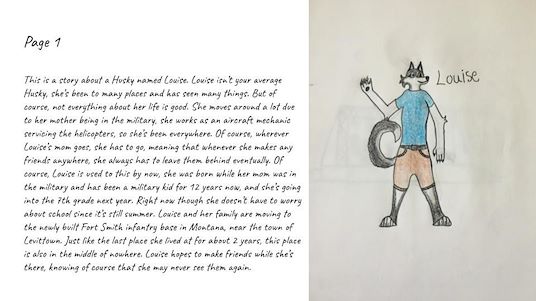 Page 1
This is a story about a Husky named Louise. Louise isn't your average
Husky, she's been to many places and has seen many things. But of
course, not everything about her life is good. She moves around a lot due
to her mother being in the military, she works as an aircraft mechanic
servicing the helicopters, so she's been everywhere. Of course, wherever
Louise's mom goes, she has to go, meaning that whenever she makes any
friends anywhere, she always has to leave them behind eventually. Of
course, Louise is used to this by now, she was born while her mom was in
the military and has been a military kid for 12 years now, and she's going
into the 7th grade next year. Right now though she doesn't have to worry
about school since it's still summer. Louise and her family are moving to
the newly built Fort Smith infantry base in Montana, near the town of
Levittown. Just like the last place she lived at for about 2 years, this place
is also in the middle of nowhere. Louise hopes to make friends while she's
there, knowing of course that she may never see them again.
Louise